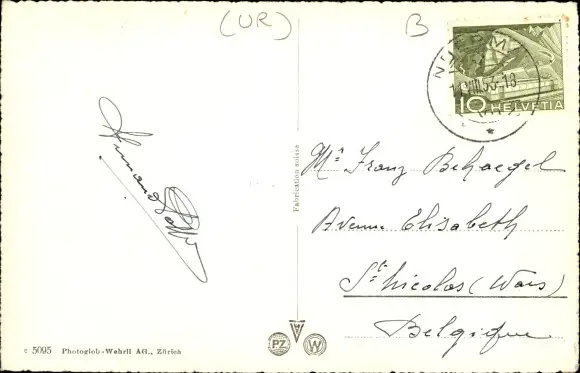 (UR)
B
10 HELVETIA
VIII.53-18
Armand
Fabrication suisse
Mr Franz Behaegel
Avenue Elisabeth
St Nicolas (Waes)
Belgique
c 5095 Photoglob-Wehrli AG., Zürich
PZ W